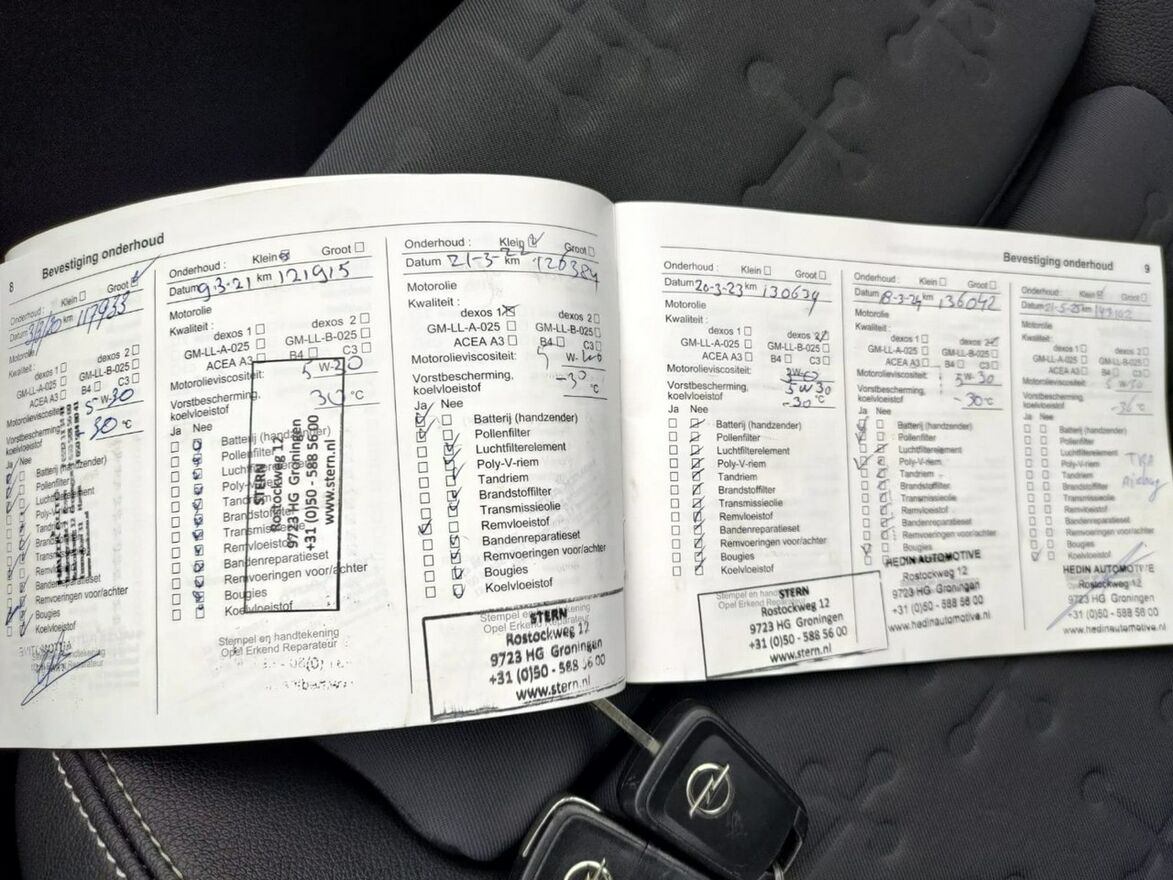 8
Bevestiging onderhoud
Onderhoud : Klein Groot
Datum km 117933
Motorolie
Kwaliteit : dexos 2
GM-LL-A-025 GM-LL-B-025
ACEA A3 B4 C3
Motorolieviscositeit: 5 W-30
Vorstbescherming,
koelvloeistof 30 °C
Ja Nee
Batterij (handzender)
Pollenfilter
Luchtfilterelement
Poly-V-riem
Tandriem
Bandenreparatieset
Remvoeringen voor/achter
Bougies
Koelvloeistof
Onderhoud : Klein Groot
Datum 9-3-21 km 121915
Motorolie
Kwaliteit : dexos 2
dexos 1
GM-LL-A-025 GM-LL-B-025
ACEA A3 B4 C3
Motorolieviscositeit: 5 W-20
Vorstbescherming,
koelvloeistof 30 °C
Ja Nee
Batterij (handzender)
Pollenfilter
Luchtfilterelement
Poly-V-riem
Tandriem
Brandstoffilter
Transmissieolie
Remvloeistof
Bandenreparatieset
Remvoeringen voor/achter
Bougies
Koelvloeistof
STERN
Rostockweg 12
9723 HG Groningen
+31 (0)50 - 588 56 00
www.stern.nl
Stempel en handtekening
Opel Erkend Reparateur
Onderhoud : Klein Groot
Datum 21-3-22 km 126384
Motorolie
Kwaliteit :
dexos 1 dexos 2
GM-LL-A-025 GM-LL-B-025
ACEA A3 B4 C3
Motorolieviscositeit: 5 W-
Vorstbescherming,
koelvloeistof -30 °C
Ja Nee
Batterij (handzender)
Pollenfilter
Luchtfilterelement
Poly-V-riem
Tandriem
Brandstoffilter
Transmissieolie
Remvloeistof
Bandenreparatieset
Remvoeringen voor/achter
Bougies
Koelvloeistof
Stempel en handtekening
Opel Erkend Reparateur
STERN
Rostockweg 12
9723 HG Groningen
+31 (0)50 - 588 56 00
www.stern.nl
Bevestiging onderhoud
9
Onderhoud : Klein Groot
Datum 20-3-23 km 130679
Motorolie
Kwaliteit :
dexos 1 dexos 2
GM-LL-A-025 GM-LL-B-025
ACEA A3 B4 C3
Motorolieviscositeit:
5 W 30
Vorstbescherming,
koelvloeistof -30 °C
Ja Nee
Batterij (handzender)
Pollenfilter
Luchtfilterelement
Poly-V-riem
Tandriem
Brandstoffilter
Transmissieolie
Remvloeistof
Bandenreparatieset
Remvoeringen voor/achter
Bougies
Koelvloeistof
Stempel en handtekening
Opel Erkend Reparateur
STERN
Rostockweg 12
9723 HG Groningen
+31 (0)50 - 588 56 00
www.stern.nl
Onderhoud : Klein Groot
Datum 8-3-24 km 136042
Motorolie
Kwaliteit :
dexos 1 dexos 2
GM-LL-A-025 GM-LL-B-025
ACEA A3 B4 C3
Motorolieviscositeit: 5 W-30
Vorstbescherming,
koelvloeistof -30 °C
Ja Nee
Batterij (handzender)
Pollenfilter
Luchtfilterelement
Poly-V-riem
Tandriem
Brandstoffilter
Transmissieolie
Remvloeistof
Bandenreparatieset
Remvoeringen voor/achter
Bougies
HEDIN AUTOMOTIVE
Rostockweg 12
9723 HG Groningen
+31 (0)50 - 588 56 00
www.hedinautomotive.nl
Onderhoud : Klein Groot
Datum 21-5-25 km
Motorolie
Kwaliteit :
dexos 1 dexos 2
GM-LL-A-025 GM-LL-B-025
ACEA A3 B4 C3
Motorolieviscositeit: 5 W
Vorstbescherming,
koelvloeistof °C
Ja Nee
Batterij (handzender)
Pollenfilter
Luchtfilterelement
Poly-V-riem
Tandriem
Brandstoffilter
Transmissieolie
Remvloeistof
Bandenreparatieset
Remvoeringen voor/achter
Bougies
Koelvloeistof
HEDIN AUTOMOTIVE
Rostockweg 12
9723 HG Groningen
+31 (0)50 - 588 56 00
www.hedinautomotive.nl